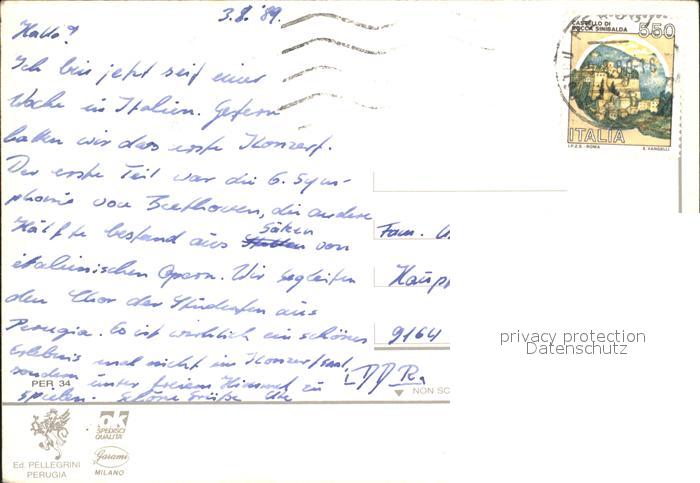 3.8.'89.
Hallo!
Ich bin jetzt seit einer
Woche in Italien. Gestern
hatten wir das erste Konzert.
Der erste Teil war die 6. Sym-
phonie von Beethoven, die andere
Hälfte bestand aus Sätzen von
italienischen Opern. Wir begleiten
den Chor der Studenten aus
Perugia. Es ist wirklich ein schönes
Erlebnis mal nicht im Konzertsaal,
sondern unter freiem Himmel zu
spielen. Schöne Grüße
CASTELLO DI
ROCCA SINIBALDA
550
ITALIA
I.P.Z.S. - ROMA
E. VANGELLI
Fam.
Haup
9164
privacy protection
Datenschutz
NON SC
PER 34
Ed. PELLEGRINI
PERUGIA
ok
SPEDISCI
QUALITA'
Garami
MILANO